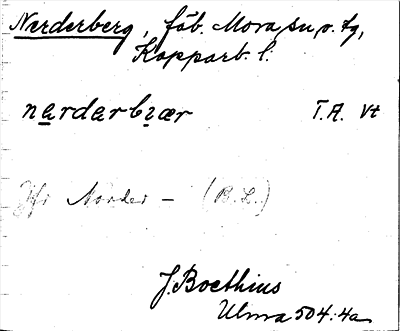 Nerderberg, fäb. Mora sn o. tg,
Kopparb. l.
nardarbær T.A. Vt
Jfr Norder - (B.L.)
J. Boethius
Ulma 504:4a